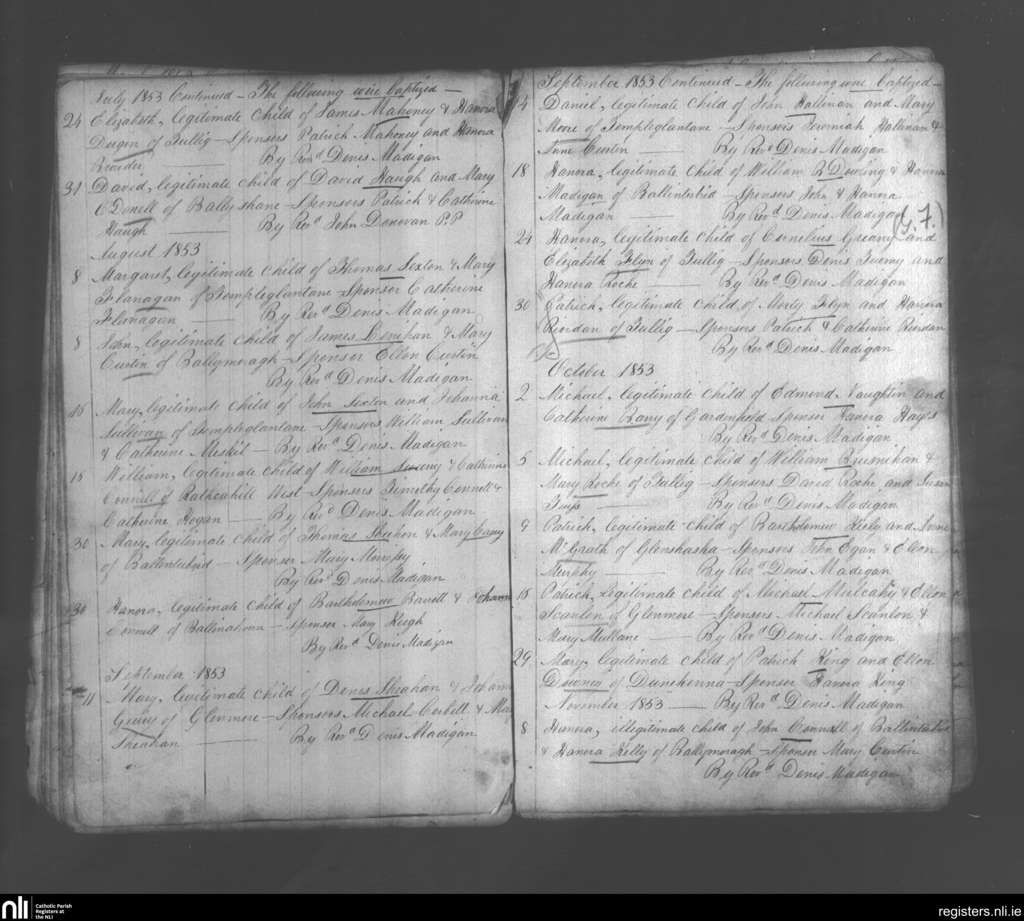 July 1853 Continued – The following were baptized –
24 Elizabeth, legitimate child of James Mahoney & Hanora
of Tullig – Sponsors Patrick Mahoney and Hanora
By Revd. Denis Madigan
31 David, legitimate child of David Haugh and Mary
O'Donell of Ballyshane – Sponsors Patrick & Catherine
Haugh By Revd. John Donovan P.P
August 1853
8 Margaret, legitimate child of Thomas Sexton & Mary
Flanagan of Templeglantane – Sponser Catherine
Flanagan By Revd. Denis Madigan
8 John, legitimate child of James Lenihan & Mary
Curtin of Ballymoragh – Sponser Ellen Curtin
By Revd. Denis Madigan
15 Mary, legitimate child of John Sexton and Johanna
Sullivan of Templeglantane – Sponsers William Sullivan
& Catherine Meskil – By Revd. Denis Madigan
15 William, legitimate child of William & Catherine
Connell of Rathcahill West – Sponsers Timothy Connell &
Catherine Hogan – By Revd. Denis Madigan
30 Mary, legitimate child of Thomas Sheehan & Mary Casey
of – Sponser Mary
By Revd. Denis Madigan
30 Hanora, legitimate child of Bartholomew Barrett &
Connell of – Sponser Mary Keogh
By Revd. Denis Madigan
September 1853
11 Mary, legitimate child of Denis Sheahan &
of Glenmore – Sponsors Michael Corbett &
Sheahan By Revd. Denis Madigan
September 1853 Continued – The following were baptized –
Daniel, legitimate child of John Hallinan and Mary
Moore of Templeglantane – Sponsers Jeremiah Hallinan &
Anne Curtin By Revd. Denis Madigan
18 Hanora, legitimate child of William Dowling & Hanora
Madigan of – Sponsers John & Hanora
Madigan By Revd. Denis Madigan
24 Hanora, legitimate child of Cornelius Greany and
Elizabeth Flyn of Tullig – Sponsers Denis and
Hanora Roche By Revd. Denis Madigan
30 Patrick, legitimate child of Morty Flyn and Hanora
Riordan of Tullig – Sponsers Patrick & Catherine Riordan
By Revd. Denis Madigan
October 1853
2 Michael, legitimate child of Edmond Naughtin and
Catherine of – Sponser Hanora Hays
By Revd. Denis Madigan
5 Michael, legitimate child of William &
Mary Roche of Tullig – Sponsers David Roche and Susan
By Revd. Denis Madigan
9 Patrick, legitimate child of Bartholomew Kiely and Anne
McGrath of Glenshasha – Sponsers John Egan & Ellen
Murphy By Revd. Denis Madigan
15 Patrick, legitimate child of Michael Mulcahy & Ellen
Scanlon of Glenmore – Sponsers Michael Scanlon &
Mary Mullane By Revd. Denis Madigan
29 Mary, legitimate child of Patrick King and Ellen
Downey of – Sponser Hanora King
November 1853 By Revd. Denis Madigan
8 Hanora, illegitimate child of John Connell of
& Hanora Kelly of Ballymoragh – Sponser Mary Curtin
By Revd. Denis Madigan
nli
Catholic Parish
Registers at
the NLI
registers.nli.ie